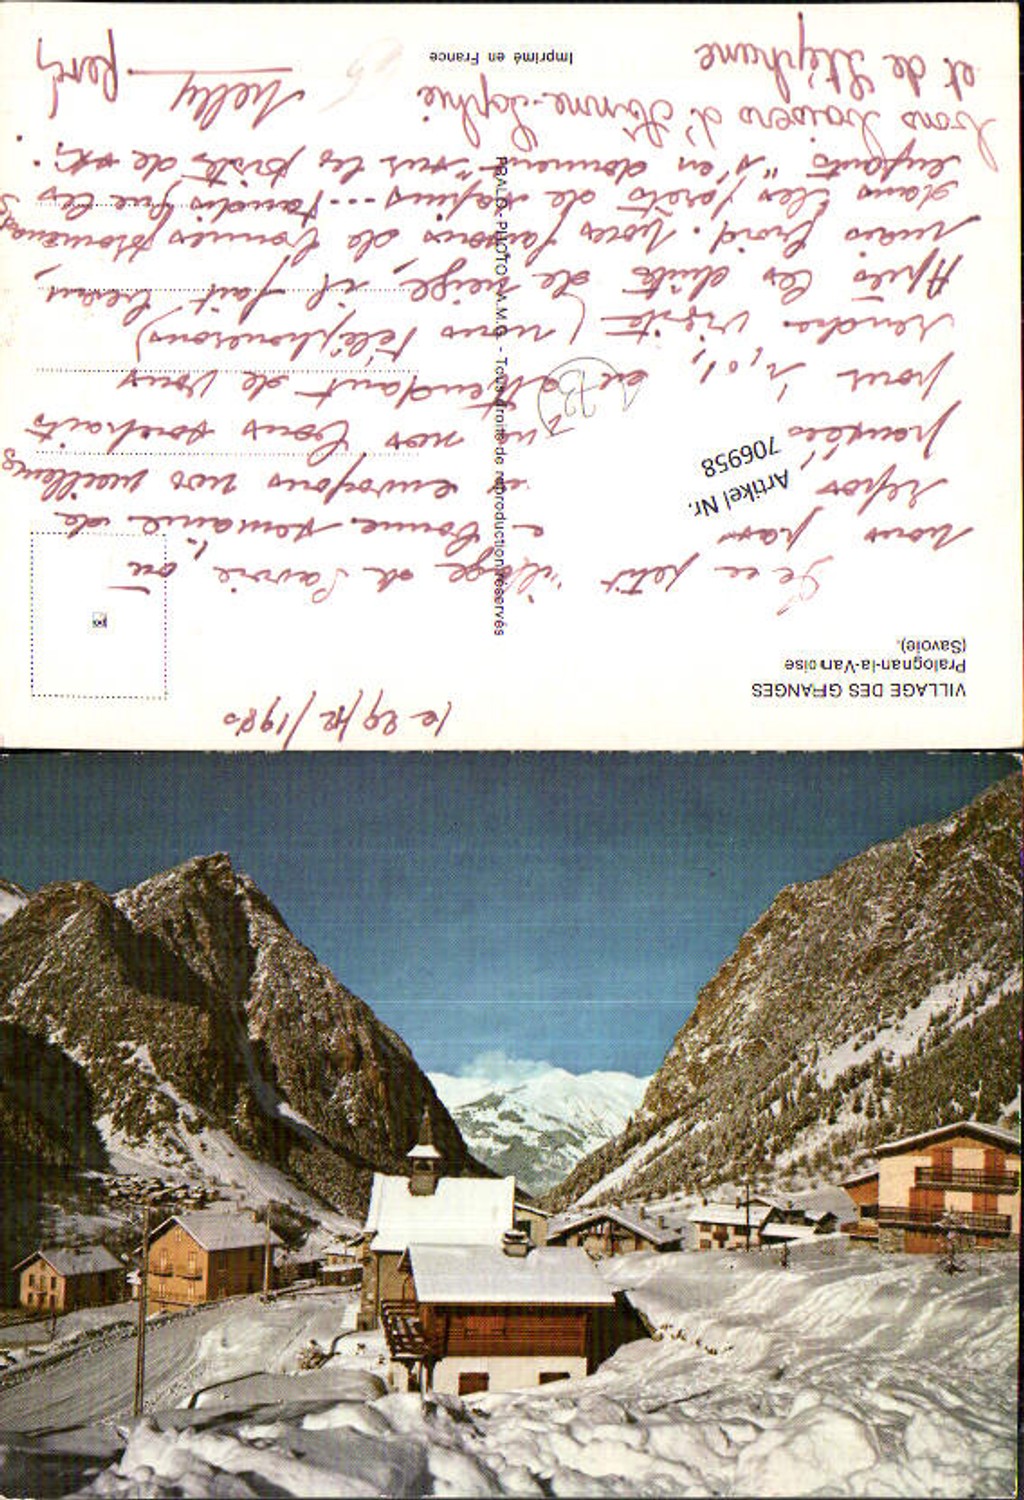 le 29/12/1980
VILLAGE DES GRANGES
Pralognan-la-Vanoise
(Savoie).
De ce petit village de Savoie, où
nous pas e bonne semaine de
repos envoyons nos meilleures
pensées nos bons souhaits
pour en attendant de vous
rendre visite (nous téléphonerons)
Après les chutes de neige, il fait beau,
mais froid. Nous faisons de bonnes promenades
dans les forêts de sapins ... tandis que les
enfants "s'en donnent" sur les pistes de ski.
Bons baisers d'Anne-Sophie
et de Stéphane
Nelly
Artikel Nr.
706958
PRALO - PHOTO A.M.G. - Tous droits de reproduction réservés
Imprimé en France